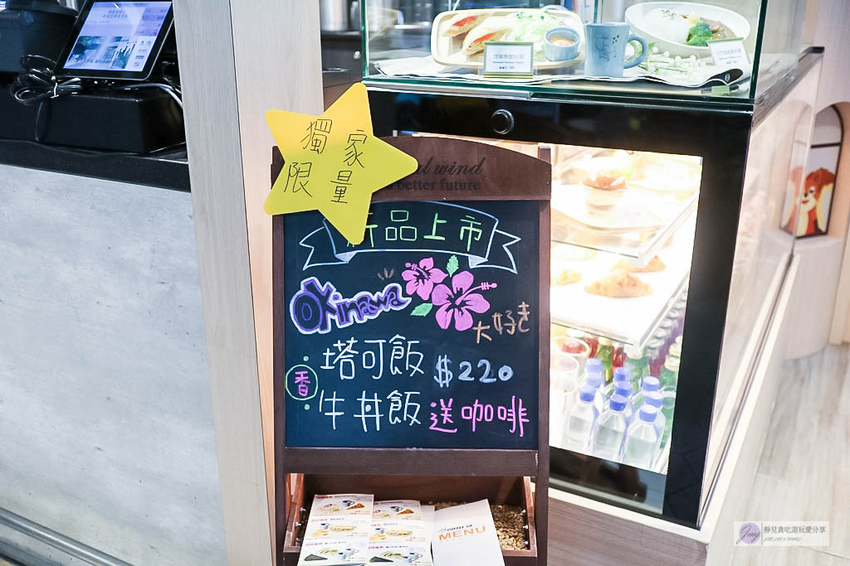 獨家
限量
wind
better future
新品上市
Okinawa
大好き
香
塔可飯 $220
牛丼飯 送咖啡
MENU
靜兒貪吃遊玩愛分享